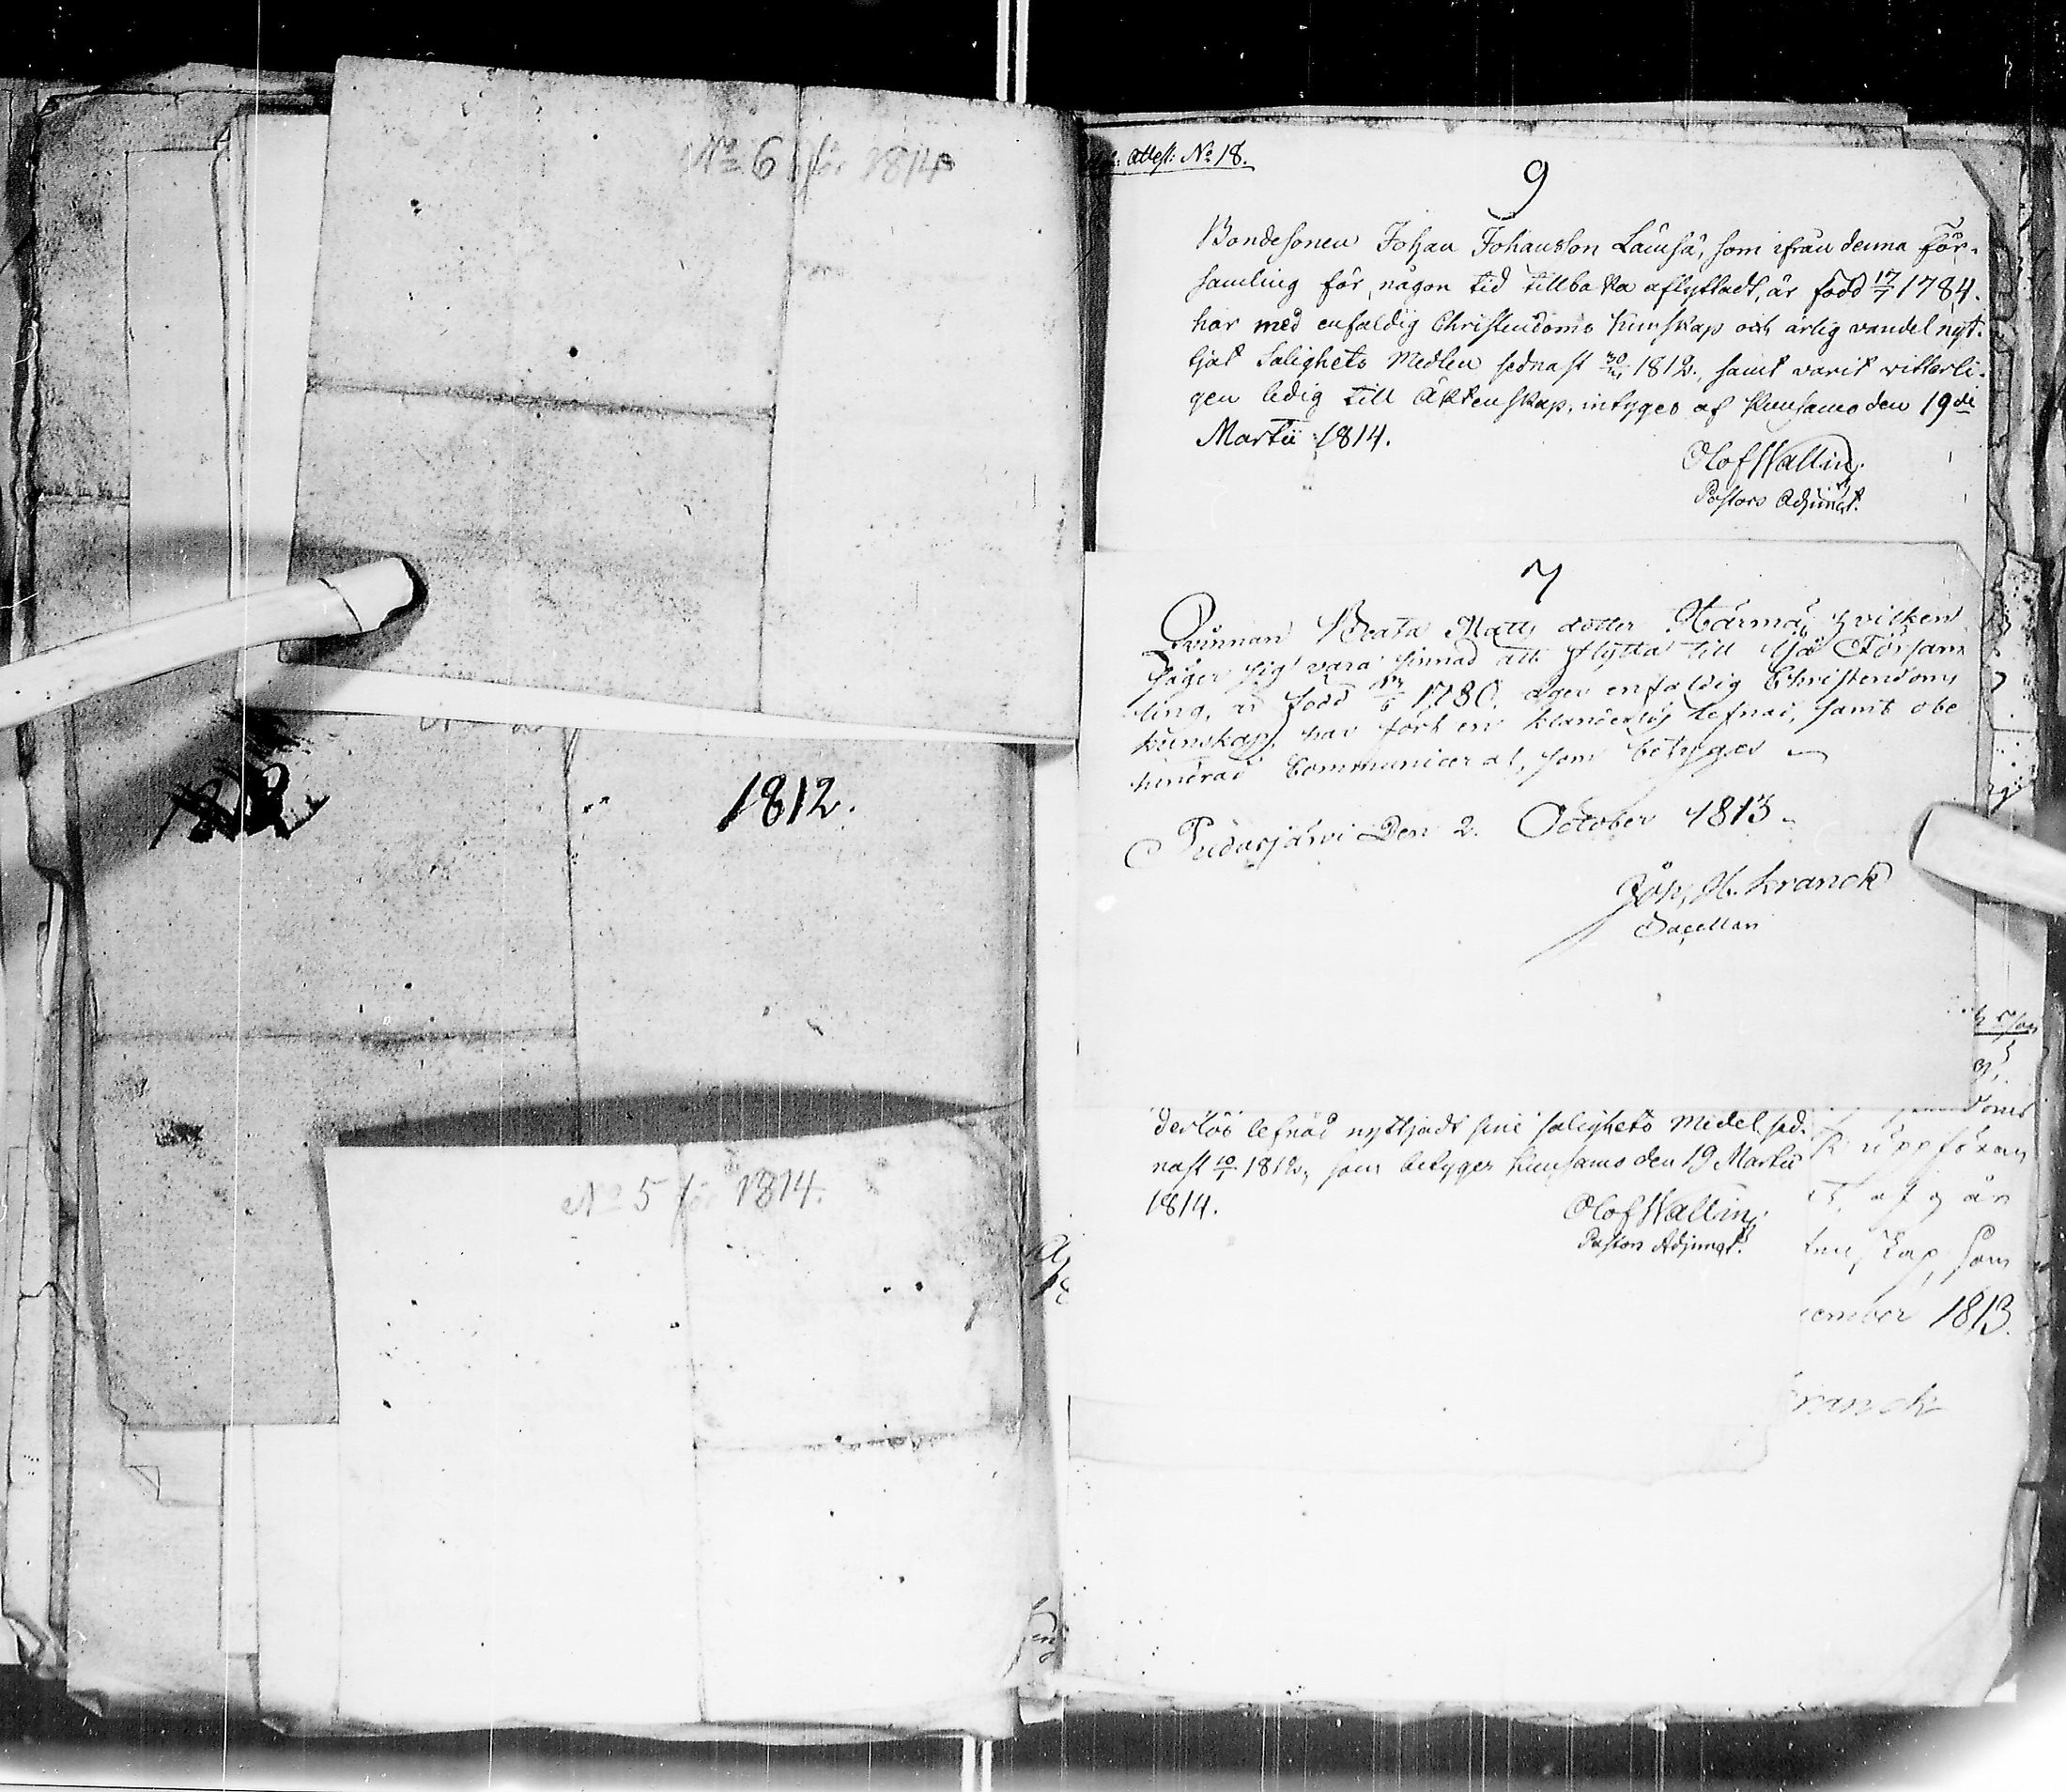 No 6 för 1814
1812.
No 5 för 1814.
Attest: No 18.
9
Bondesonen Johan Johansson Lämsä, som ifrån denna För-
samling för någon tid tillbaka aflyttadt, är född 17/7 1784.
har med enfaldig Christendoms kunskap och ärlig vandel nyt-
tjat Salighets Medlen sednast 1812., samt varit vitterli-
gen ledig till Äktenskap, intygas af Kuusamo den 19de
Martii 1814.
Olof Walling
Pastors Adjunct.
7
Qvinnan Beata Matts dotter Härmä, hvilken
säger sig vara sinnad att flytta till Ijå Församm
ling, är född 1780. äger enfaldig Christendoms
kunskap, har fört en klanderlös lefnad, samt obe
hindrad Communicerat, som betygas
Pudasjärvi Den 2. October 1813.
Joh. H. Kranck
Sacellan
derlös lefnad nyttjadt sine salighets Medel sed-
nast 10/ 1812, som betygar Kuusamo den 19 Martii
1814.
Olof Walling
Pastors Adjunct.
uppföran
af g är
skap, som
cember 1813.
ranck